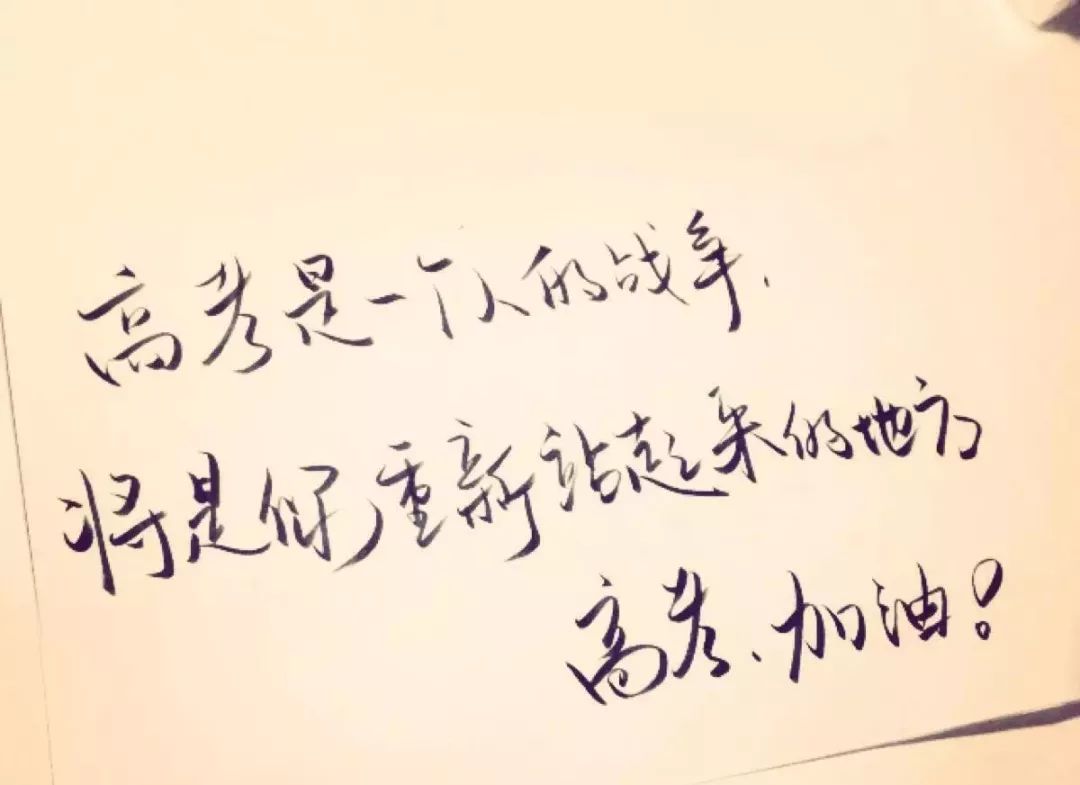 高考是一个人的战争.
将是你重新站起来的地方
高考、加油!